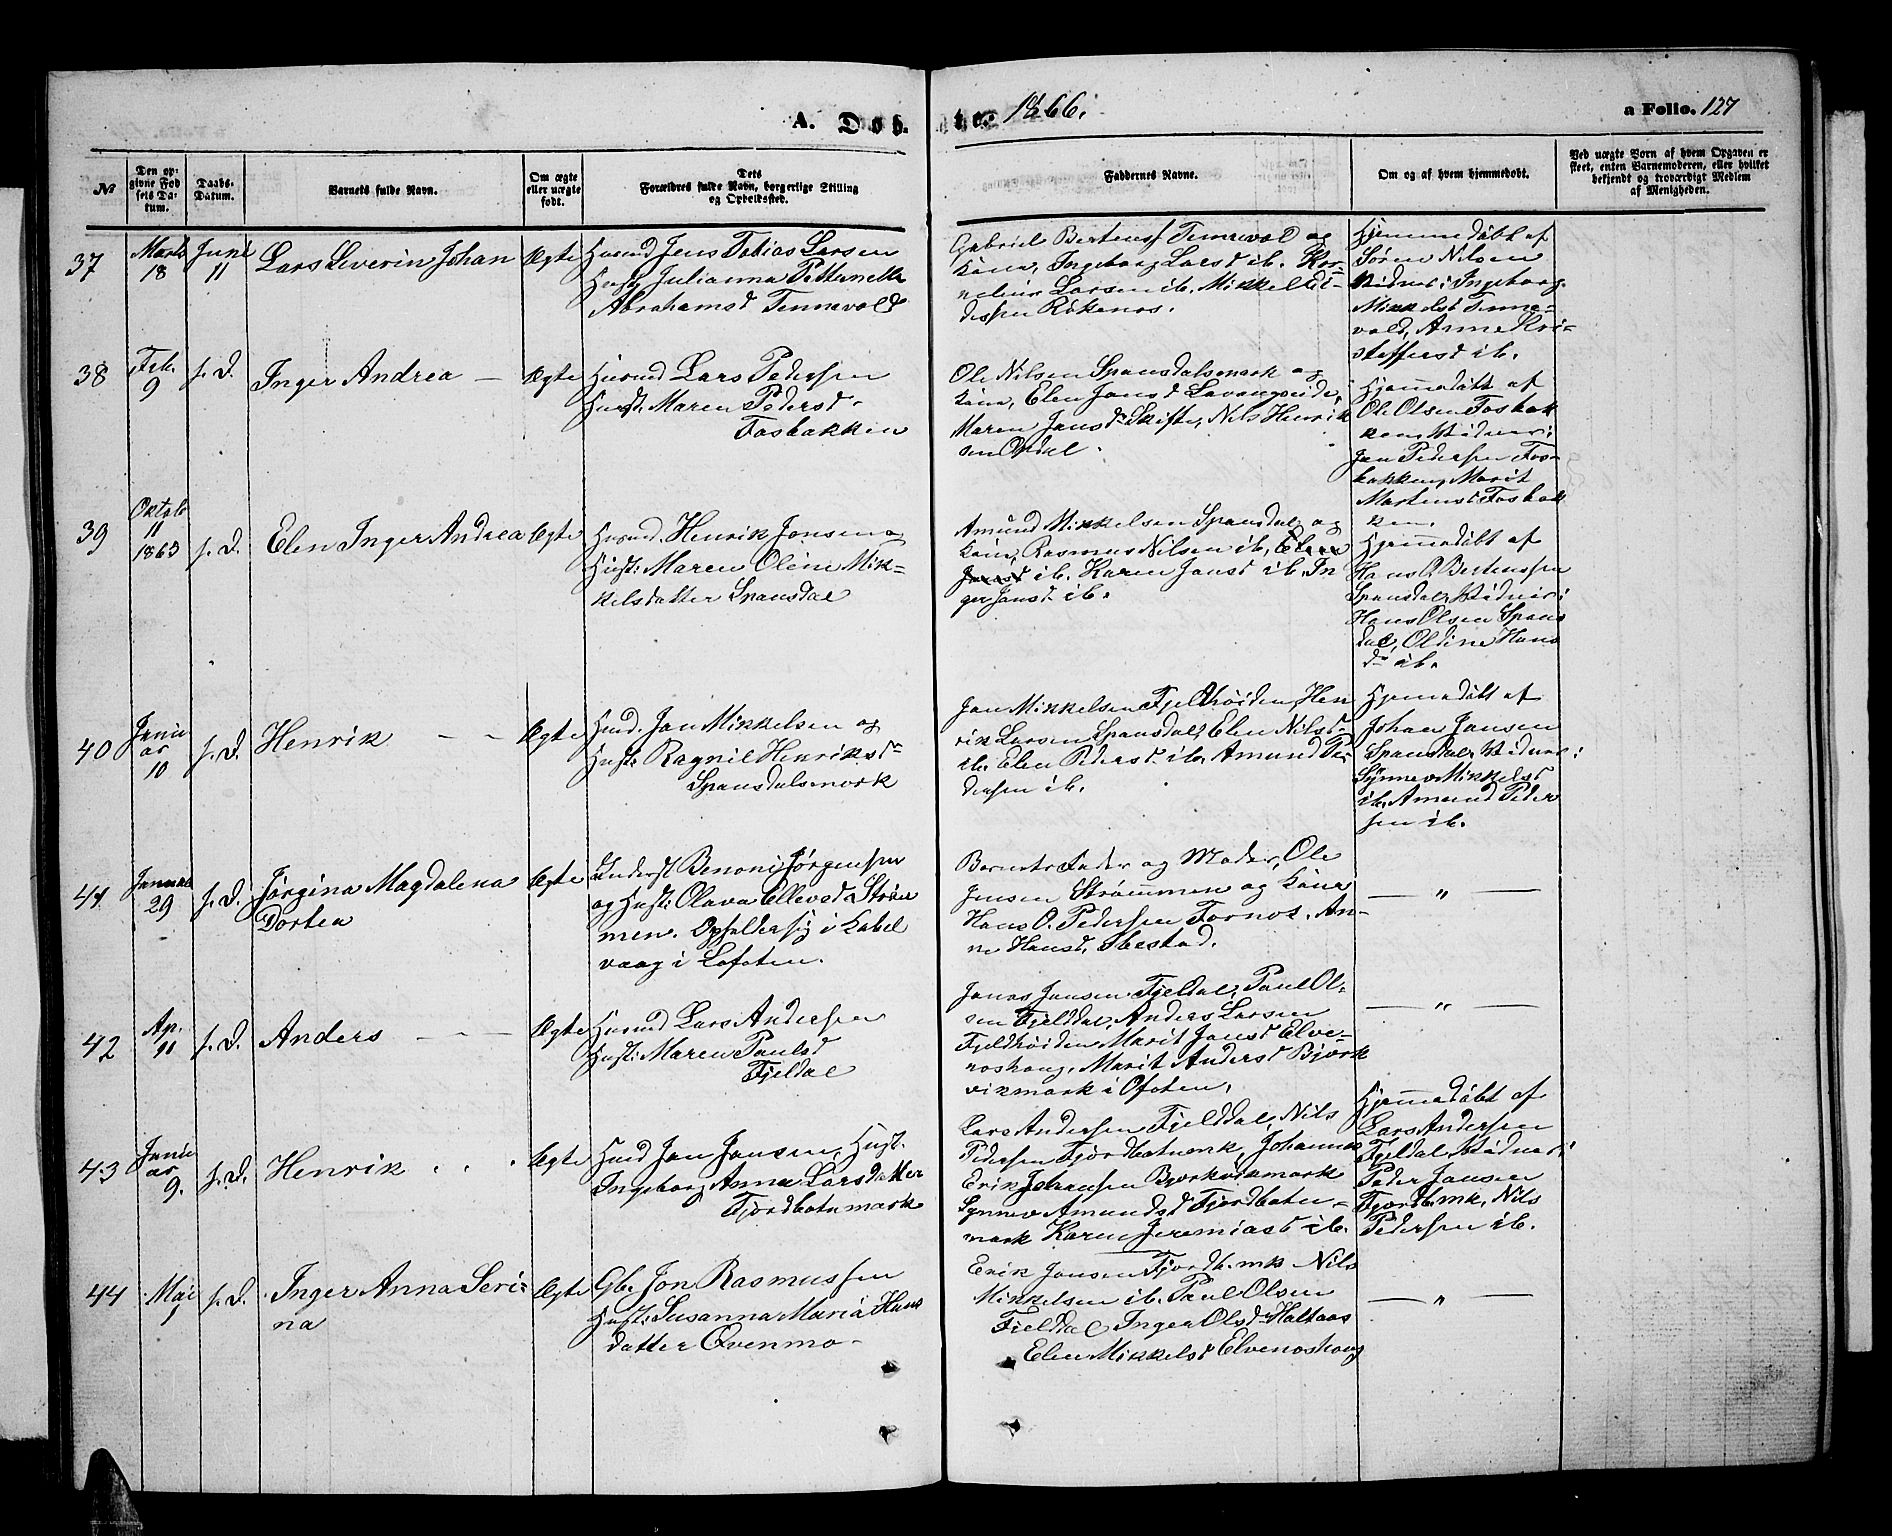 A. Døb- te. 1866.
a Folio. 127
№
Den op-
givne Fød
sels Da-
tum.
Daabs-
Datum.
Barnets fulde Navn.
Om ægte
eller uægte
født.
Dets
Forældres fulde Navn, borgerlige Stilling
og Opholdssted.
Faddernes Navne.
Om og af hvem hjemmedøbt.
Ved uægte Børn af hvem Opgaven er
skeet, enten Barnemoderen, eller hvilket
bekjendt og troværdigt Medlem
af Menigheden.
37
Marts
18
Juni
11
Lars Severin Johan
Ægte
Husmd Jens Tobias Larsen
Hust Julianna Petternelle
Abrahamsd Tennevold
Gabriel Bertenss Tennevol og
Kone, Ingeborg Larsd ib. Kor-
nelius Larsen ib. Mikkel Ei-
dissen Røkenes.
Hjemmedøbt af
Søren Nilsen
Vidner: Ingeborg
Mikkelsd Tenne-
vold, Anne Kri-
stoffersd ib.
38
Feb.
9
s. D.
Inger Andrea —
Ægte
Husmd Lars Pedersen
Hust. Maren Pedersd.
Fosbakken
Ole Nilsen Spansdalsmark og
Kone, Elen Jonsd Lavangseide,
Maren Jonsd Skifte, Nils Henrik
sen Opdal.
Hjemmedøbt af
Ole Olsen Fosbak
ken, Vidner:
Jon Pedersen Fos-
bakken, Marit
Martensd Fosbak
ken.
39
Oktob
11
1865
s. D.
Elen Inger Andrea
Ægte
Husmd. Henrik Jonsen og
Hust: Maren Oline Mik-
kelsdatter Spansdal
Amund Mikkelsen Spansdal og
Kone, Rasmus Nilsen ib, Elen
Jonsd ib. Karen Jonsd ib. In
ger Jonsd ib.
Hjemmedøbt af
Hans O. Bertenssen
Spansdal, Vidner:
Hans Olsen Spans
dal, Oldine Hans
d. ib.
40
Janu
ar
10
s. D.
Henrik — —
Ægte
Husmd. Jon Mikkelsen og
Hust: Ragnil Henriksd
Spansdalsmark
Jon Mikkelsen Fjeldhøiden, Hen
rik Larsen Spansdal, Elen Nilsd
ib. Elen Pedersd ib, Amund Pe
dersen ib.
Hjemmedøbt af
Johan Jonsen
Spansdal, Vidner:
Synnev Mikkelsd
ib. Amund Peder
sen ib.
41
Januar
29
s. D.
Jørgina Magdalena
Dortea
Ægte
Benoni Jørgensen
og Hust: Olava Ellevsd Strøm
men. Opholder sig i Kabel
vaag i Lofoten.
Barnets Fader og Moder, Ole
Jensen Strømmen og Kone
Hans O. Pedersen Fornes. An-
ne Hansd, Ibestad.
— „ —
42
Ap.
11
s. D.
Anders — —
Ægte
Husmd Lars Andersen
Hust: Maren Paulsd
Fjeldal
Jonas Jonsen Fjeldal, Paul Ol-
sen Fjelddal, Anders Larsen
Fjeldhøiden Marit Jonsd Elve-
noshaug, Marit Andersd Bjørk
vikmark i Ofoten.
— „ —
43
Janu
ar
9.
s. D.
Henrik
Ægte
Husmd Jon Jonsen, Hust.
Ingeborg Anna Larsdatter
Fjordbotnmark
Lars Andersen Fjelddal, Nils
Pedersen Fjordbotnmk, Johannes
Erik Johansen Bjørkvikmark
Synnev Amundsd Fjordboten-
mark Karen Jeremiasd ib.
Hjemmedøbt af
Lars Andersen
Fjeldal, Vidner:
Peder Jonsen
Fjordb.mk, Nils
Pedersen ib.
44
Mai
1
s. D.
Inger Anna Seri-
na
Ægte
Gbr Jon Rasmussen
Hust: Susanna Maria Hans
datter Qvenmo
Erik Jonsen Fjordb.mk Nils
Mikkelsen ib. Paul Olsen
Fjelddal Inger Olsd Haltaas
Elen Mikkelsd Elvenoshaug
— „ —